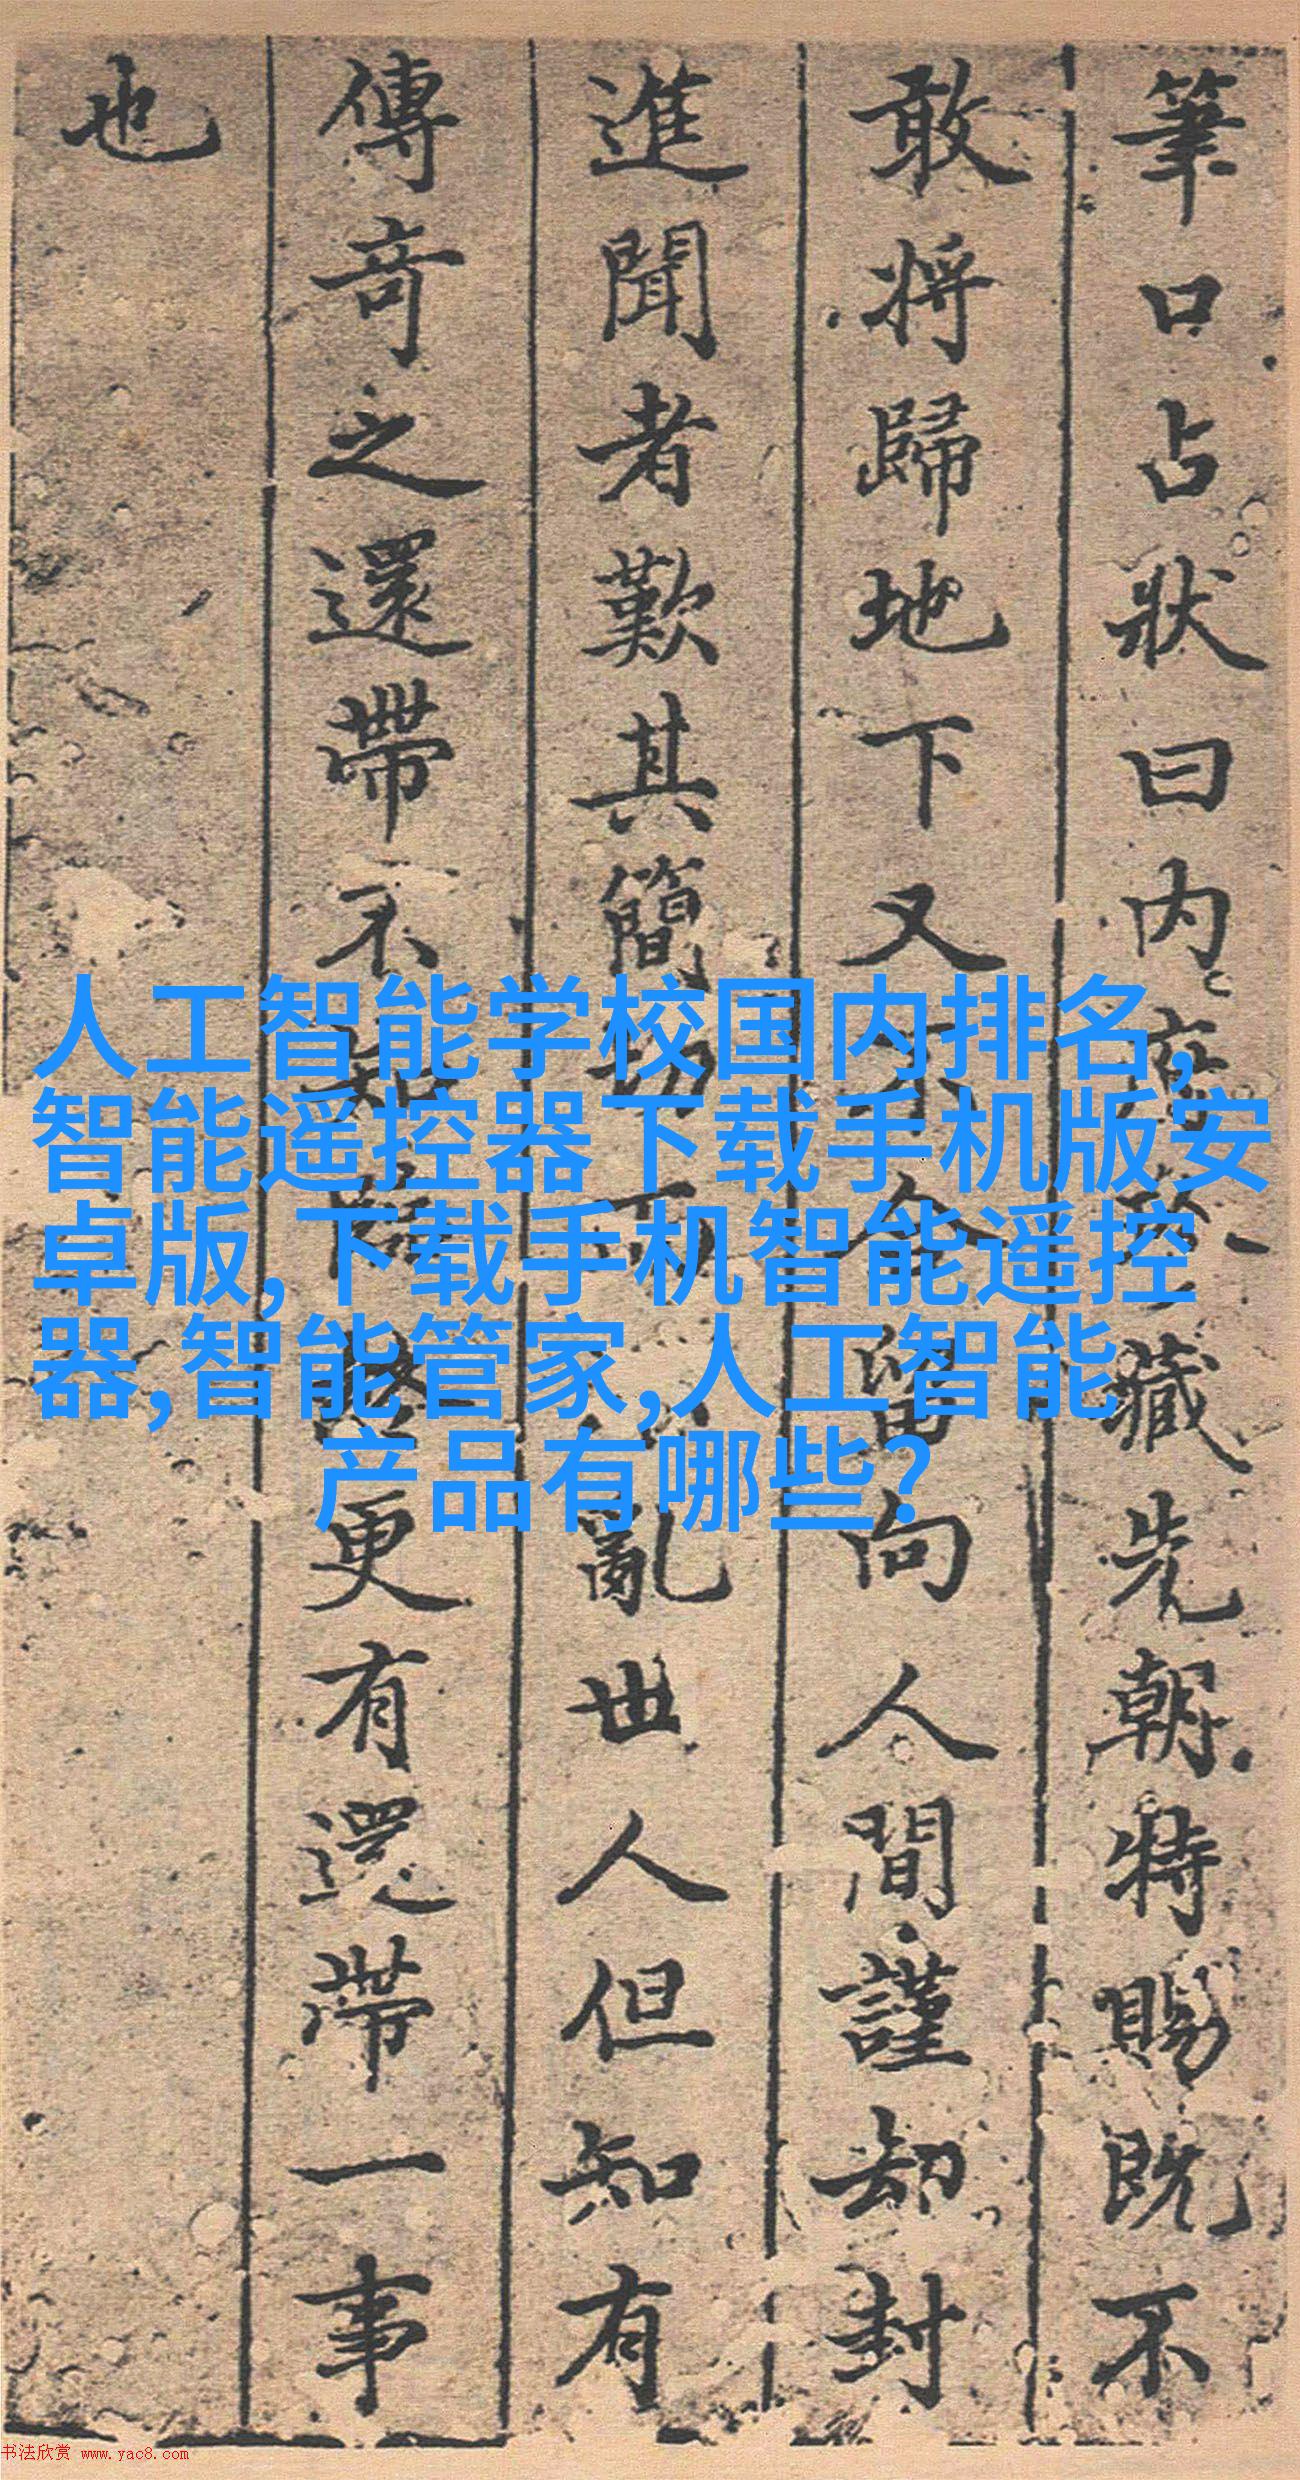 筆口占狀曰内府藏先朝特賜既不
敢將歸地下又不合留向人間謹却封
進聞者歎其簡切而不亂世人但知有
傳奇之還帶不知臨終更有還帶一事
也
人工智能学校国内排名,
智能遥控器下载手机版安
卓版,下载手机智能遥控
器,智能管家,人工智能
产品有哪些?
书法欣赏 www.yac8.com